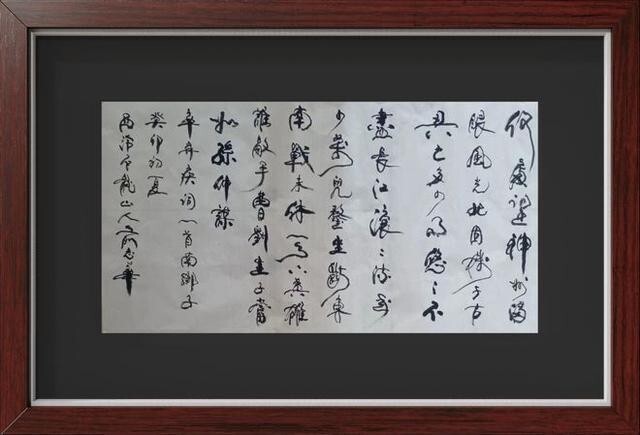 何處望神州滿
眼風光北固樓千古
興亡多少事悠〻不
盡長江滾〻流年
少萬兜鍪坐斷東
南戰未休天下英雄
誰敵手曹劉生子當
如孫仲謀
辛弃疾詞一首南鄉子
癸卯初夏
山人